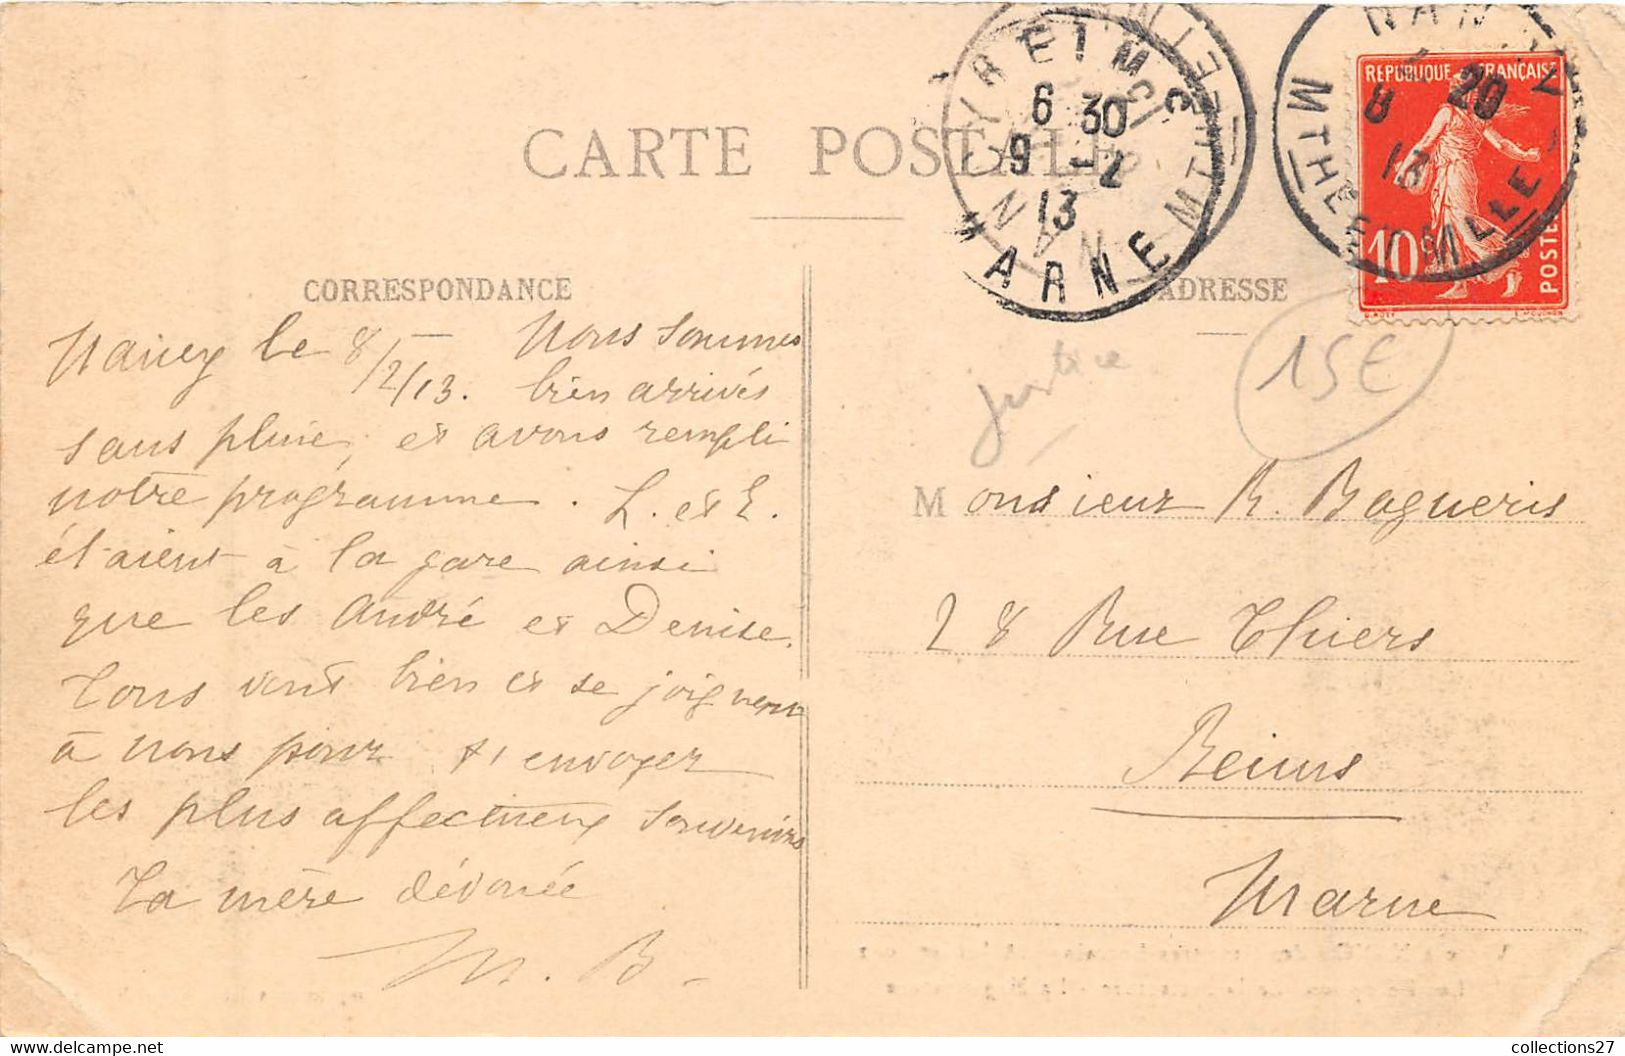 CARTE POSTALE
REIMS
6 30
9 -2
13
MARNE
NANCY
MTHE ET MLLE
8 20
13
REPUBLIQUE FRANÇAISE
10
POSTES
CORRESPONDANCE
Nancy le 8/2/13. Nous sommes
bien arrivés
sans pluie, et avons rempli
notre programme. L. et E.
étaient à la gare ainsi
que les André et Denise.
Tous vont bien et se joignent
à nous pour t'envoyer
les plus affectueux souvenirs
Ta mère dévouée
M. B.
ADRESSE
justice
15€
Monsieur R. Bagueris
28 Rue Thiers
Reims
Marne
collections27